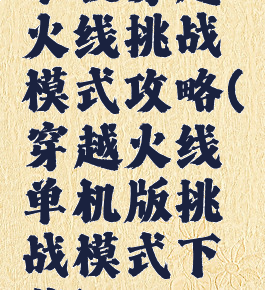 火线挑战
模式攻略(
穿越火线
单机版挑
战模式下